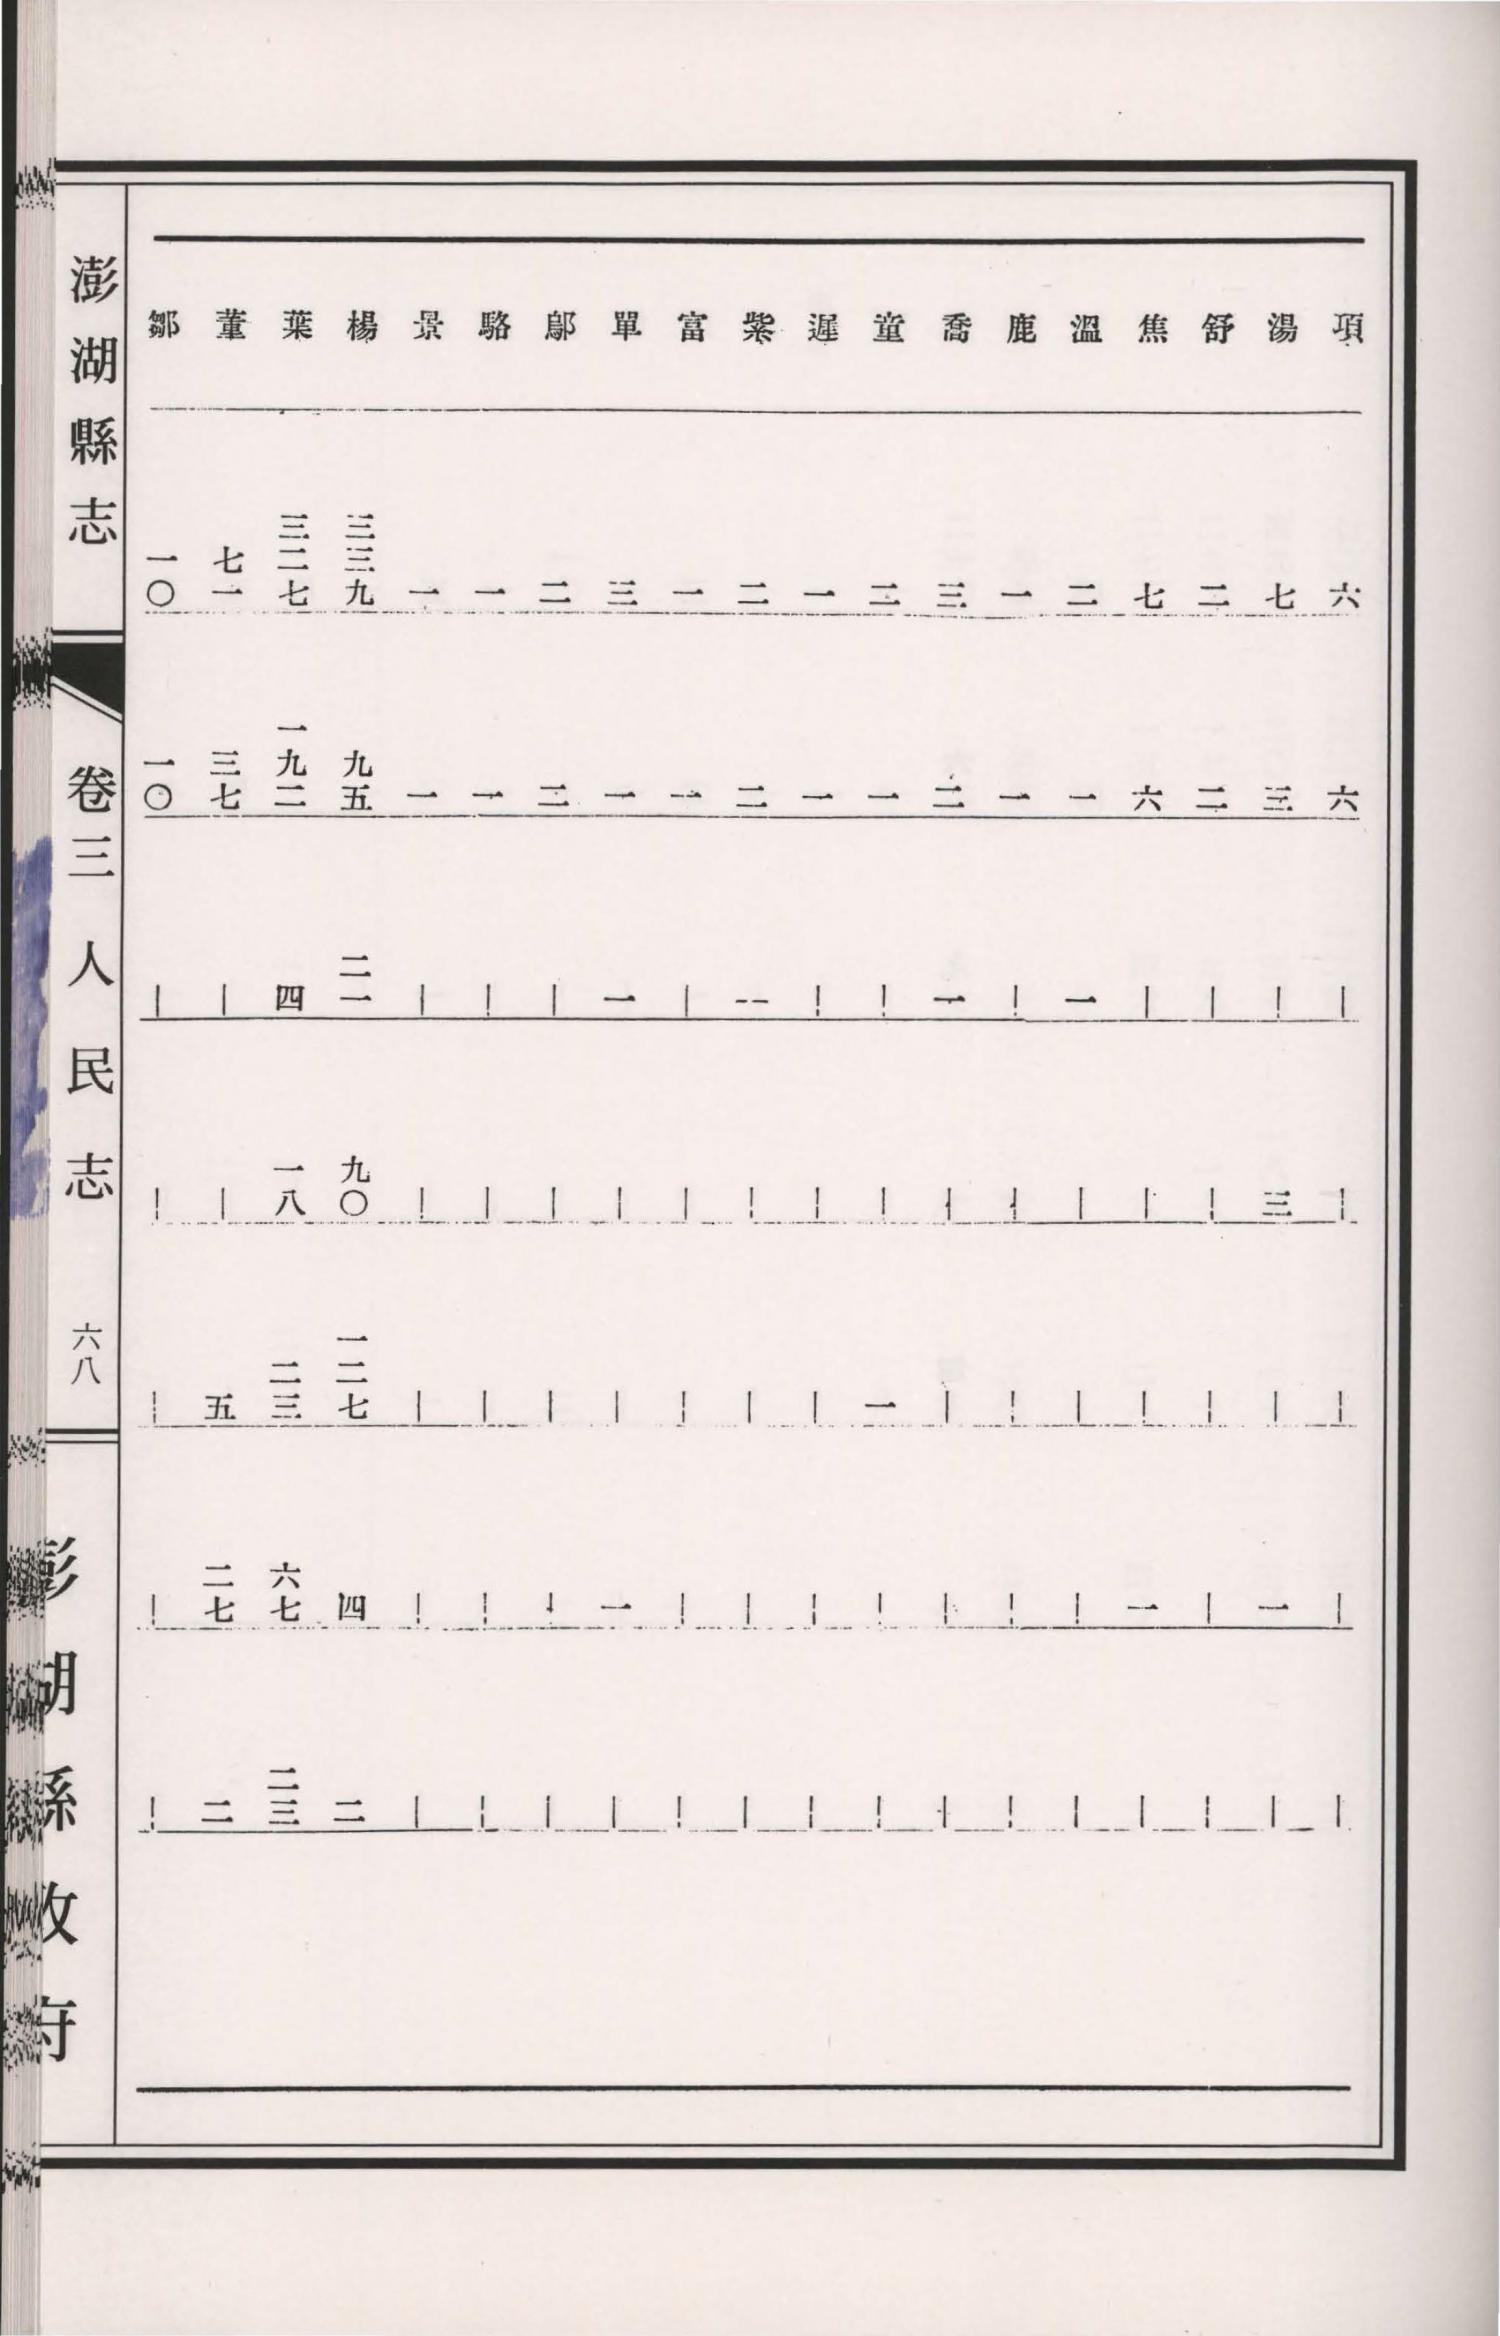 項 六 六 ｜ ｜ ｜ ｜ ｜
湯 七 三 ｜ 三 ｜ 一 ｜
舒 二 二 ｜ ｜ ｜ ｜ ｜
焦 七 六 ｜ ｜ ｜ 一 ｜
溫 二 一 一 ｜ ｜ ｜ ｜
鹿 一 一 ｜ ｜ ｜ ｜ ｜
喬 三 二 一 ｜ ｜ ｜ ｜
童 二 一 ｜ ｜ 一 ｜ ｜
遲 一 一 ｜ ｜ ｜ ｜ ｜
紫 二 二 -- ｜ ｜ ｜ ｜
富 一 一 ｜ ｜ ｜ ｜ ｜
單 三 一 一 ｜ ｜ 一 ｜
鄔 二 二 ｜ ｜ ｜ ｜ ｜
駱 一 一 ｜ ｜ ｜ ｜ ｜
景 一 一 ｜ ｜ ｜ ｜ ｜
楊 三三九 九五 二一 九〇 一二七 四 二
葉 三二七 一九二 四 一八 二三 六七 二三
董 七一 三七 ｜ ｜ 五 二七 二
鄒 一〇 一〇 ｜ ｜ ｜ ｜ ｜
澎湖縣志 卷三 人民志 六八 澎湖縣政府